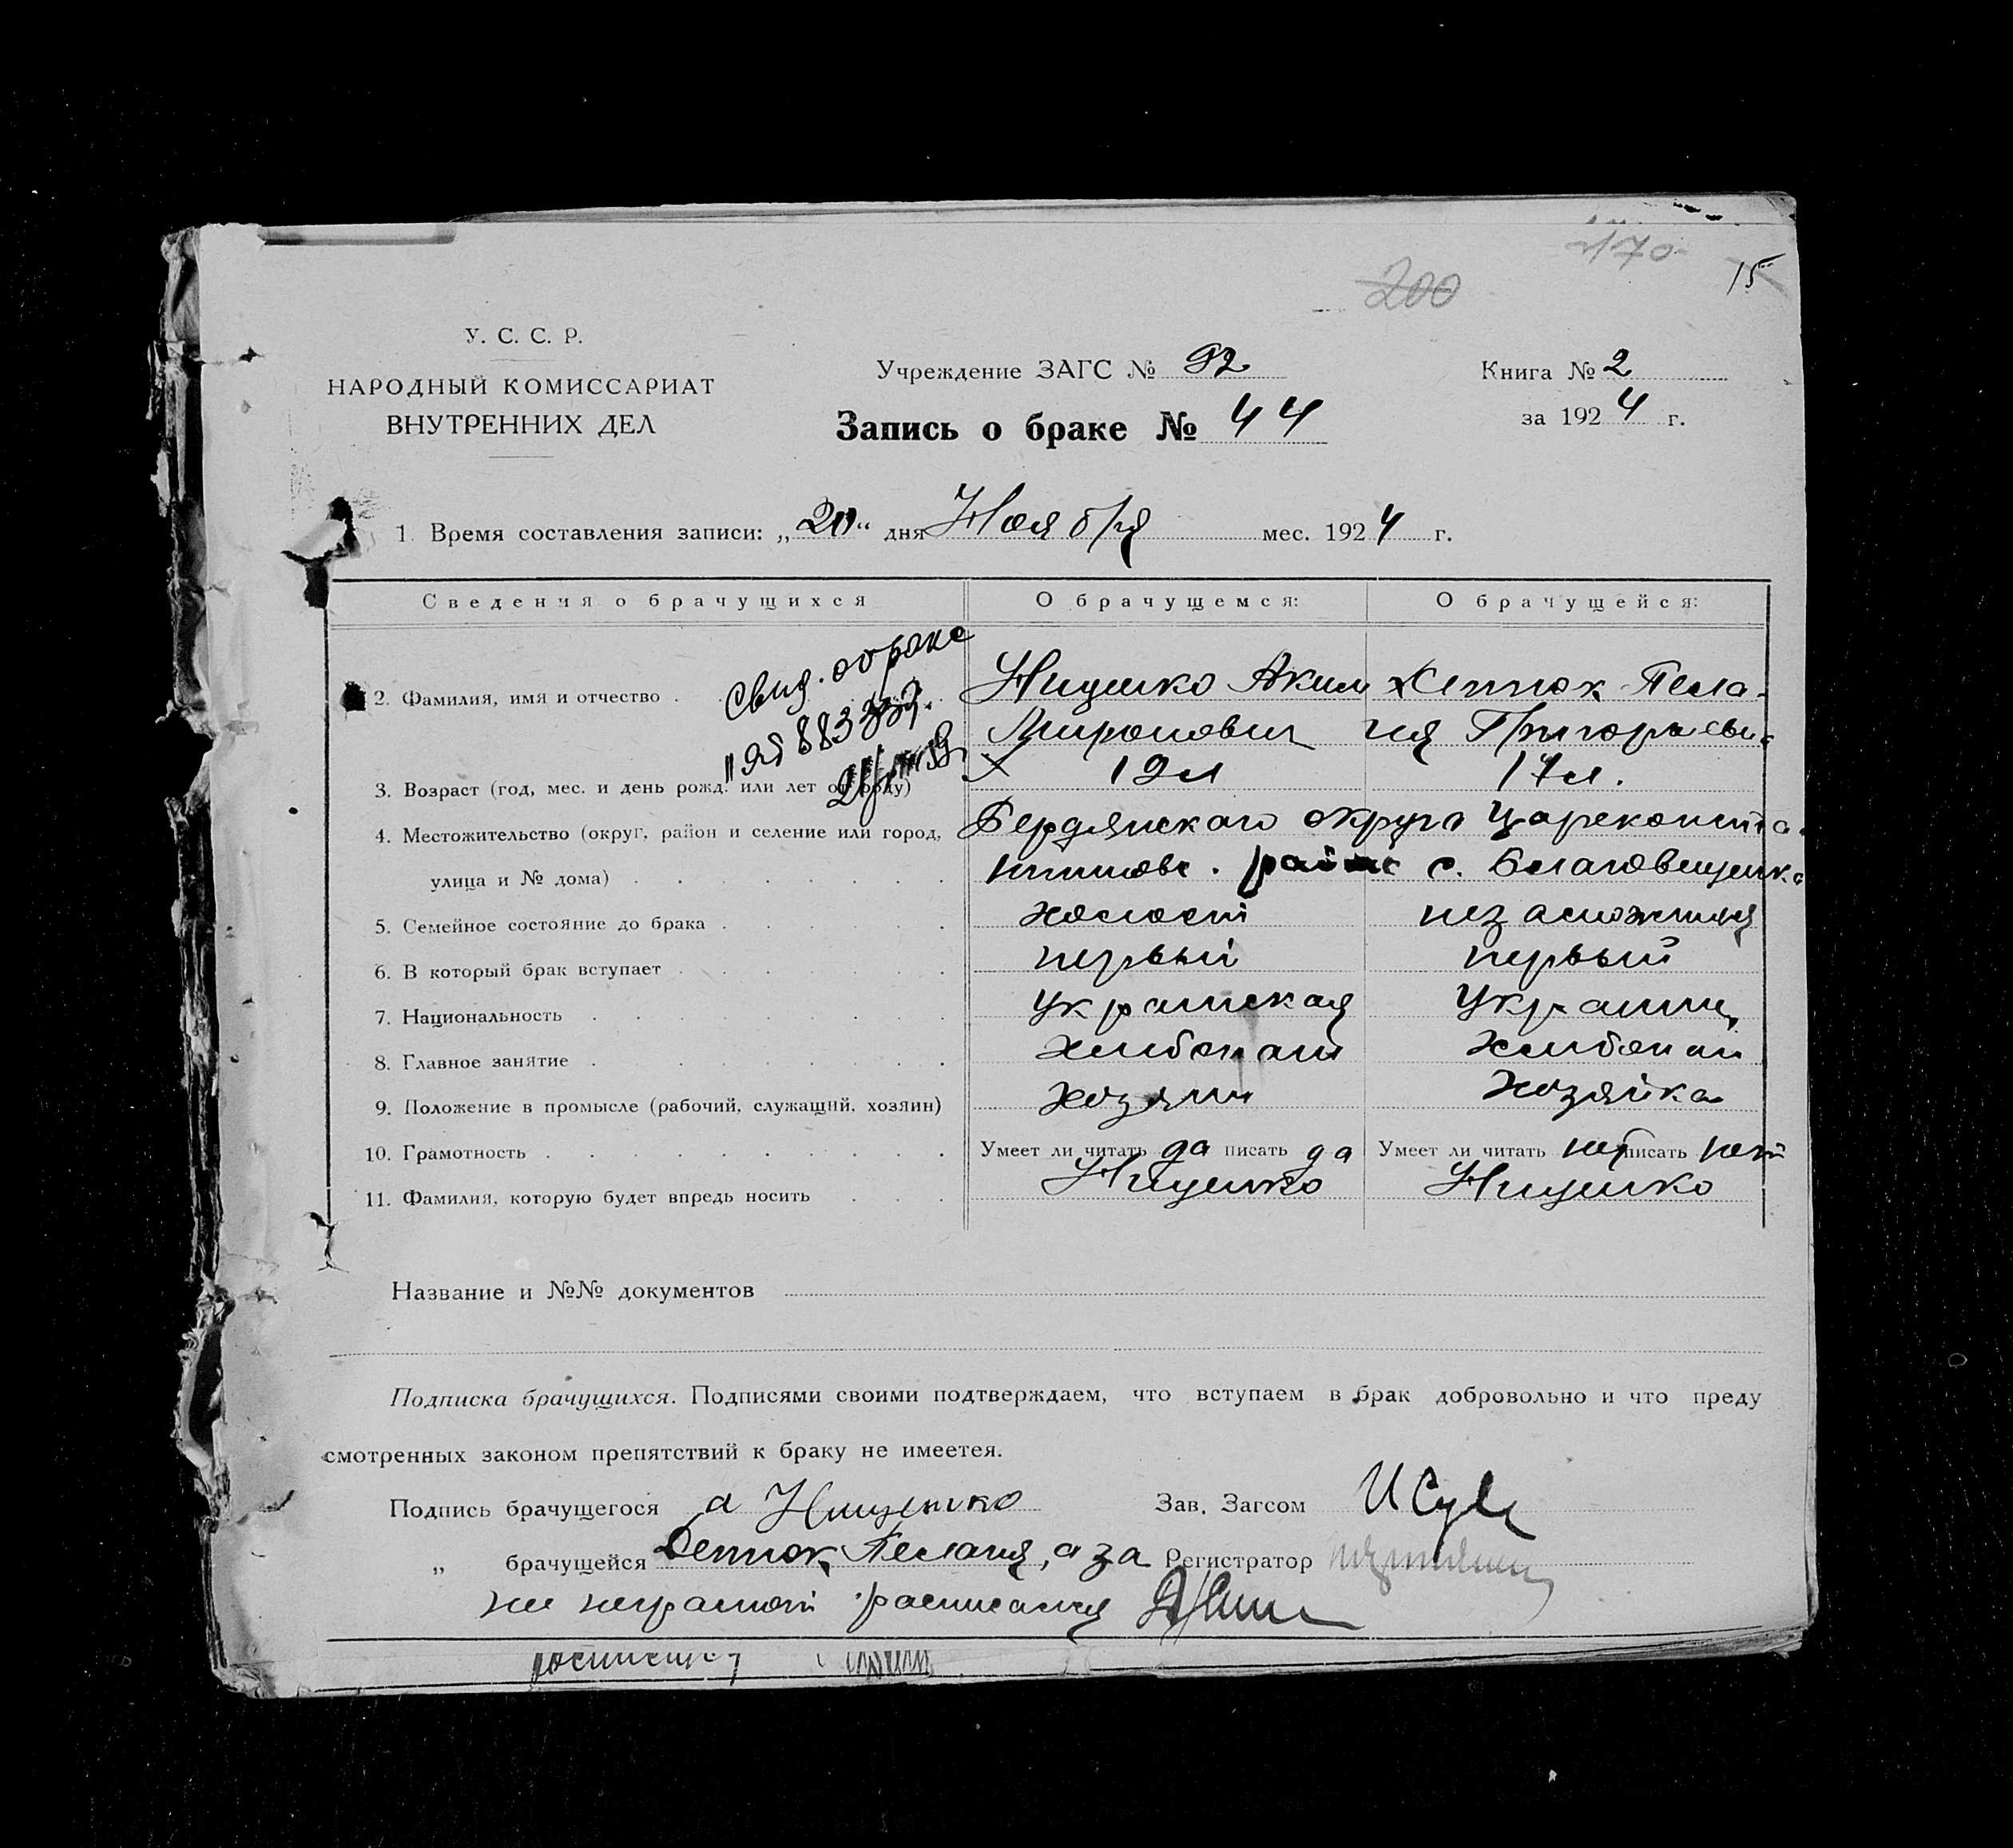 170
15
200
У. С. С. Р.
НАРОДНЫЙ КОМИССАРИАТ
ВНУТРЕННИХ ДЕЛ
Учреждение ЗАГС № 92
Книга № 2
Запись о браке № 44
за 1924 г.
1. Время составления записи: „20“ дня Ноября мес. 1924 г.
Сведения о брачущихся
О брачущемся:
О брачущейся:
Свид. о браке
2. Фамилия, имя и отчество
Нищенко Аким
Миронович
Пела-
гия Григорьевн.
3. Возраст (год, мес. и день рожд. или лет от роду)
19 л
17 л.
4. Местожительство (округ, район и селение или город,
улица и № дома)
Бердянского округа Цареконста-
нтиновс. район с. Благовещенка
5. Семейное состояние до брака
холост
незаможняя
6. В который брак вступает
первый
первый
7. Национальность
Украинская
Украинц
8. Главное занятие
хлибопаш
хлибопаш
9. Положение в промысле (рабочий, служащий, хозяин)
хозяин
хозяйка
10. Грамотность
Умеет ли читать да писать да
Умеет ли читать нет писать нет
11. Фамилия, которую будет впредь носить
Нищенко
Нищенко
Название и №№ документов
Подписка брачущихся. Подписями своими подтверждаем, что вступаем в брак добровольно и что преду
смотренных законом препятствий к браку не имеетея.
Подпись брачущегося а Нищенко
Зав. Загсом
„ брачущейся Пелагия, а за
Регистратор
неграмот расписался